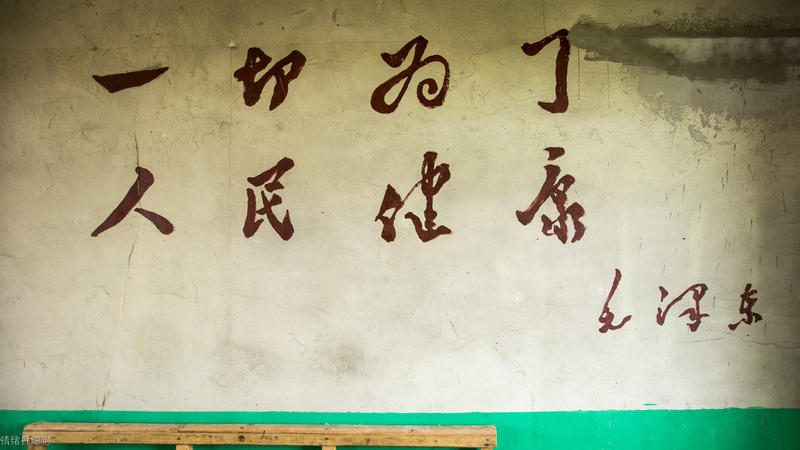 一切为了
人民健康
毛泽东
情绪丹细胞